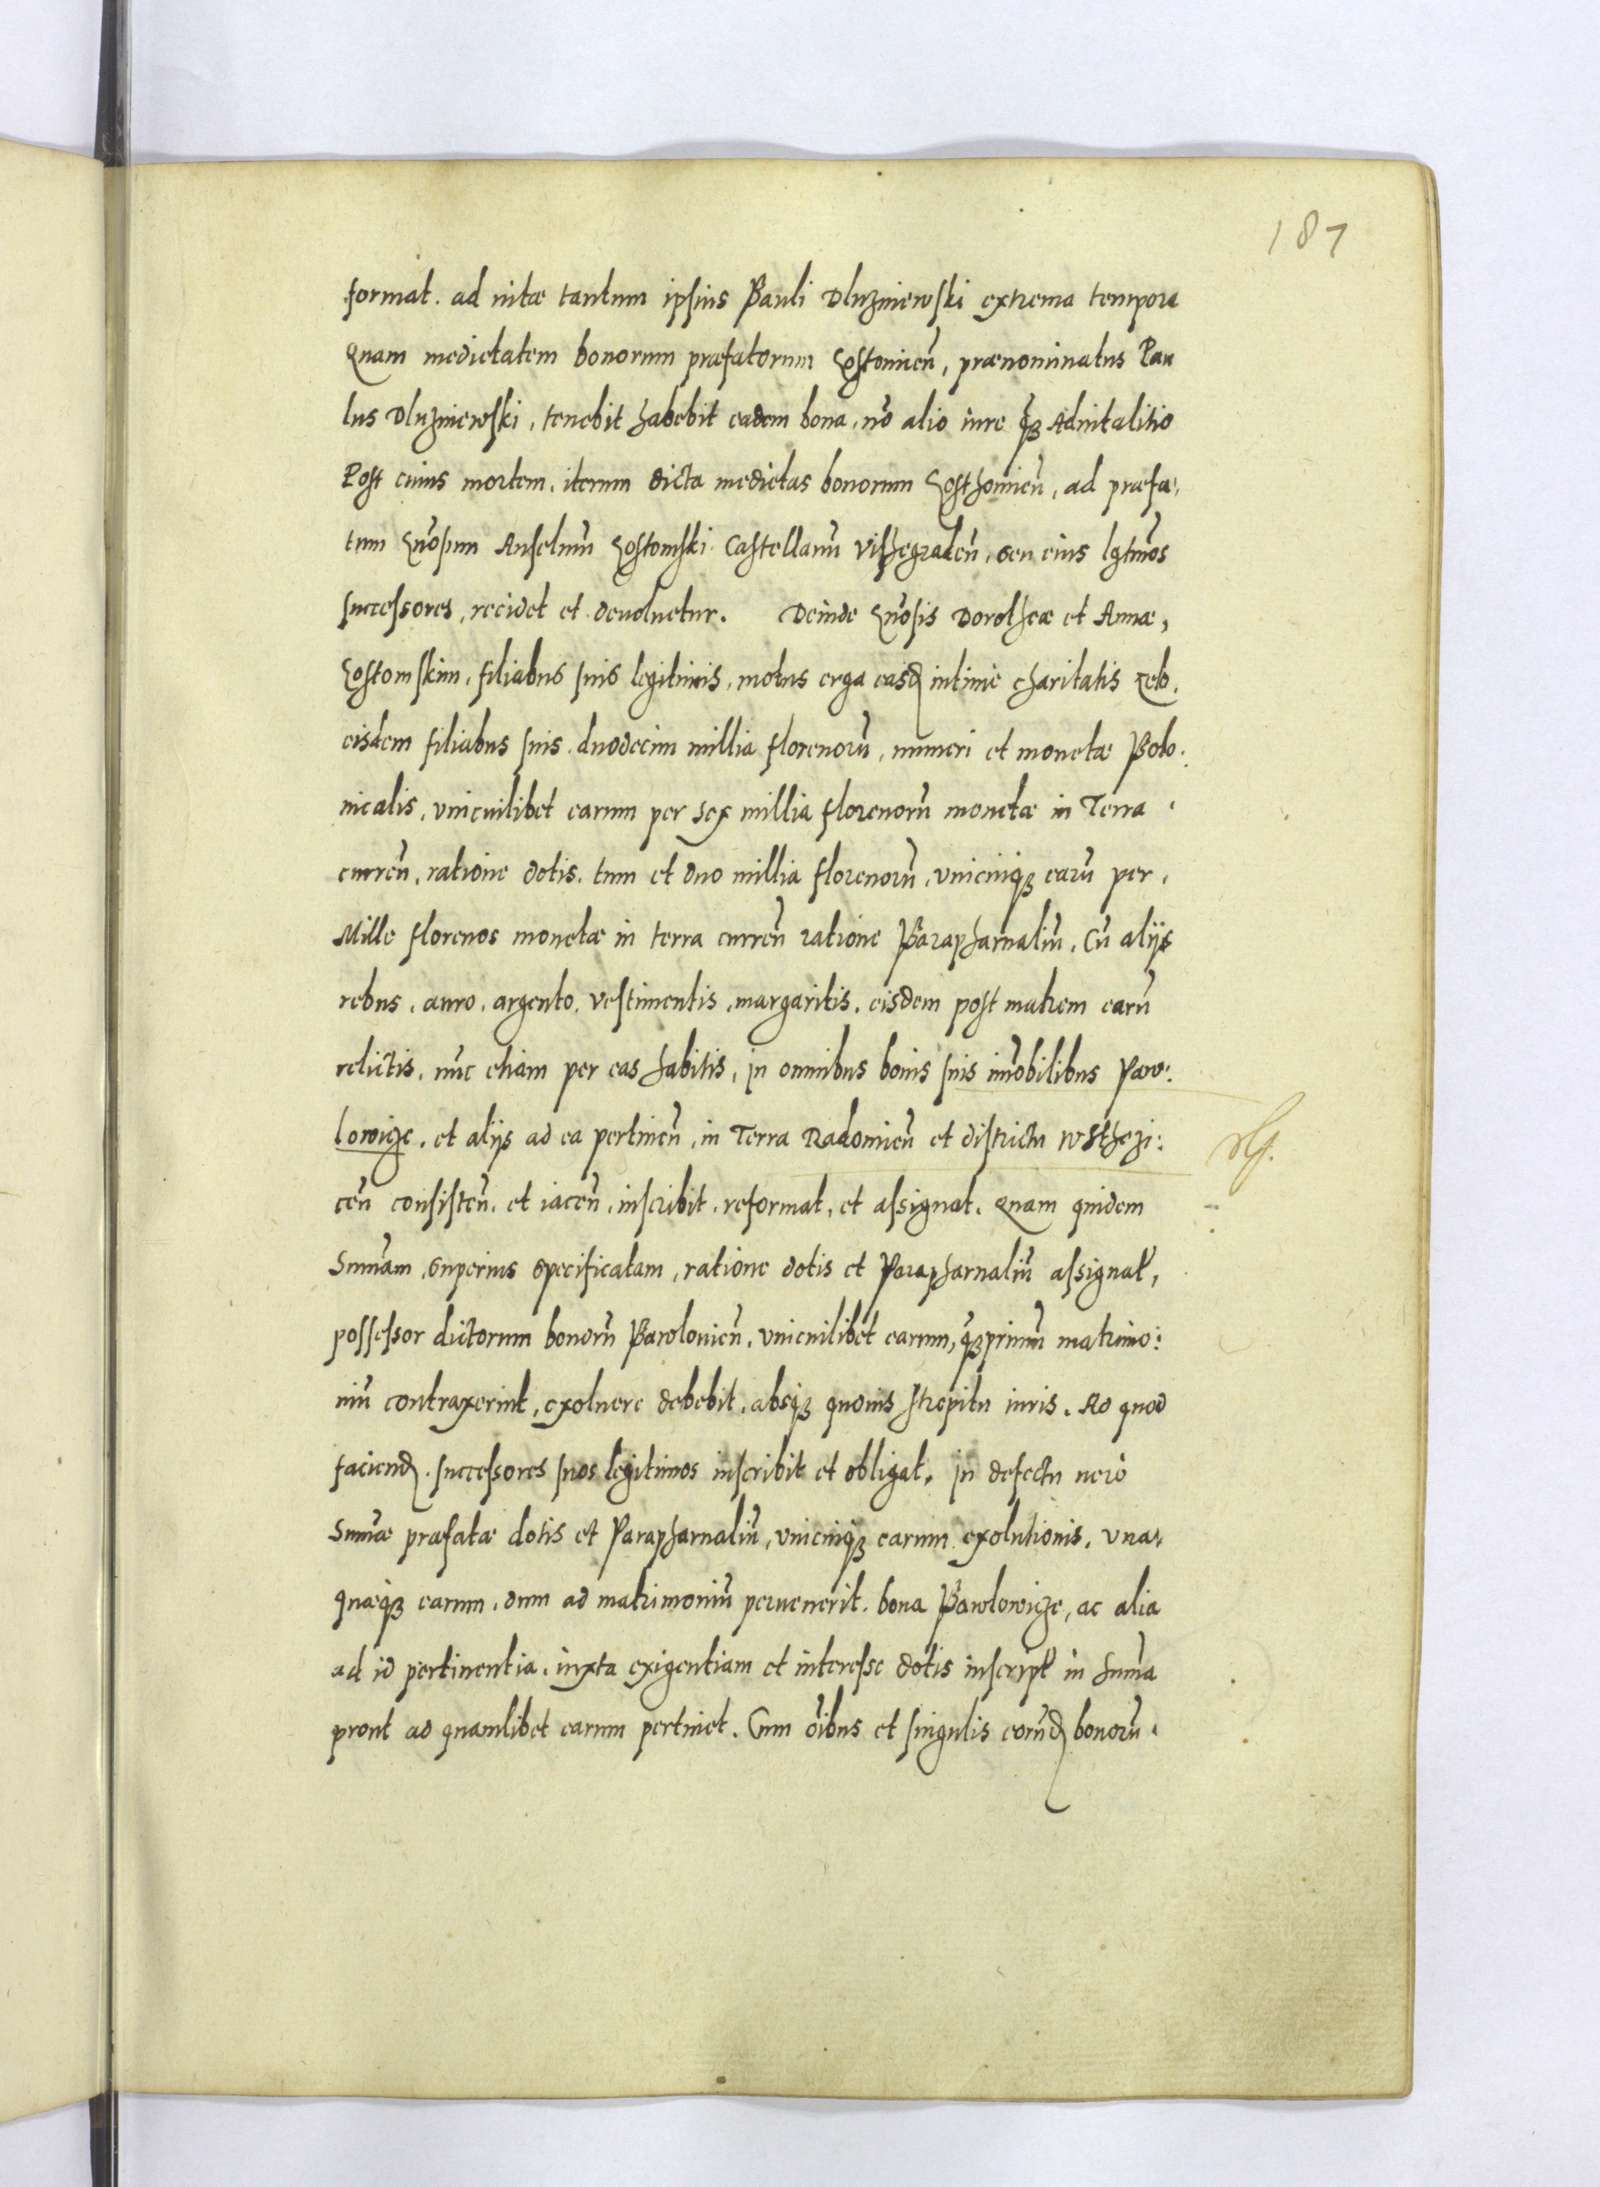 187
format. ad uitæ tantum ipsius Pauli Dluzniewski extrema tempora
Quam medietatem bonorum præfatorum Gostomień, prænominatus Pau
lus Dluzniewski, tenebit habebit eadem bona, nō alio iure q̃ꝫ Aduitalitio
Post cuius mortem, iterum dicta medietas bonorum Gosthomień, ad præfa:
tum Gn̄osum Anselmū Gostomski Castellanū Vishegradeń, seu eius lgtm̄os
successores, recidet et deuoluetur. Deinde Gn̄osis Dorotheæ et Annæ,
Gostomskim, filiabus suis legitimis, motus erga easđ intimè charitatis zelo,
eisdem filiabus suis duodecim millia florenorū, numeri et monetæ Polo:
nicalis, vnicuilibet earum per Sex millia florenorū monetæ in Terra
curreń, ratione dotis, tum et duo millia florenorū, vnicuiqꝫ earū per
Mille florenos monetæ in terra curreń ratione Parapharnaliū, Cū alijs
rebus, auro, argento, vestimentis, margaritis, eisdem post matrem earū
relictis, nūc etiam per eas habitis, in omnibus bonis suis im̄obilibus Paw:
lowicze, et alijs ad ea pertineń, in Terra Radomień et districtu Wsthezi:
ceń consisteń, et iaceń, inscribit, reformat, et assignat. Quam quidem
Sum̄am, superius specificatam, ratione dotis et Parapharnaliū assignat̃,
possessor dictorum bonorū Pawlouień, vnicuilibet earum, q̃ꝫprimū matrimo:
niū contraxerint, exoluere debebit, absqꝫ quouis strepitu iuris. Ad quod
faciend, successores suos legitimos inscribit et obligat, in defectu uerò
Sum̄æ præfatæ dotis et Parapharnaliū, vnicuiqꝫ earum exolutionis, vna:
quæqꝫ earum, dum ad matrimoniū peruenerit, bona Pawlowicze, ac alia
ad id pertinentia, iuxta exigentiam et interesse dotis inscript̃ in Sum̄a
prout ad quamlibet earum pertinet. Cum oībus et singulis eorūđ bonorū